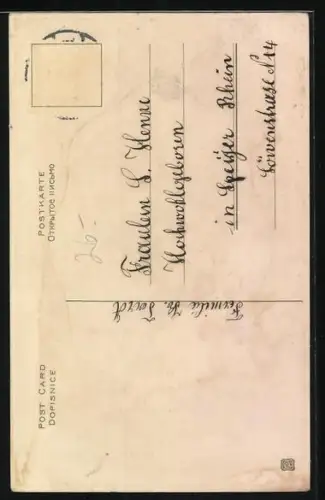 POST CARD
DOPISNICE
POSTKARTE
ОТКРЫТОЕ ПИСЬМО
26.-
Fräulein L. Henne
Hochwohlgeboren
in Speyer Rhein
Löwenstrasse № 14
Familie